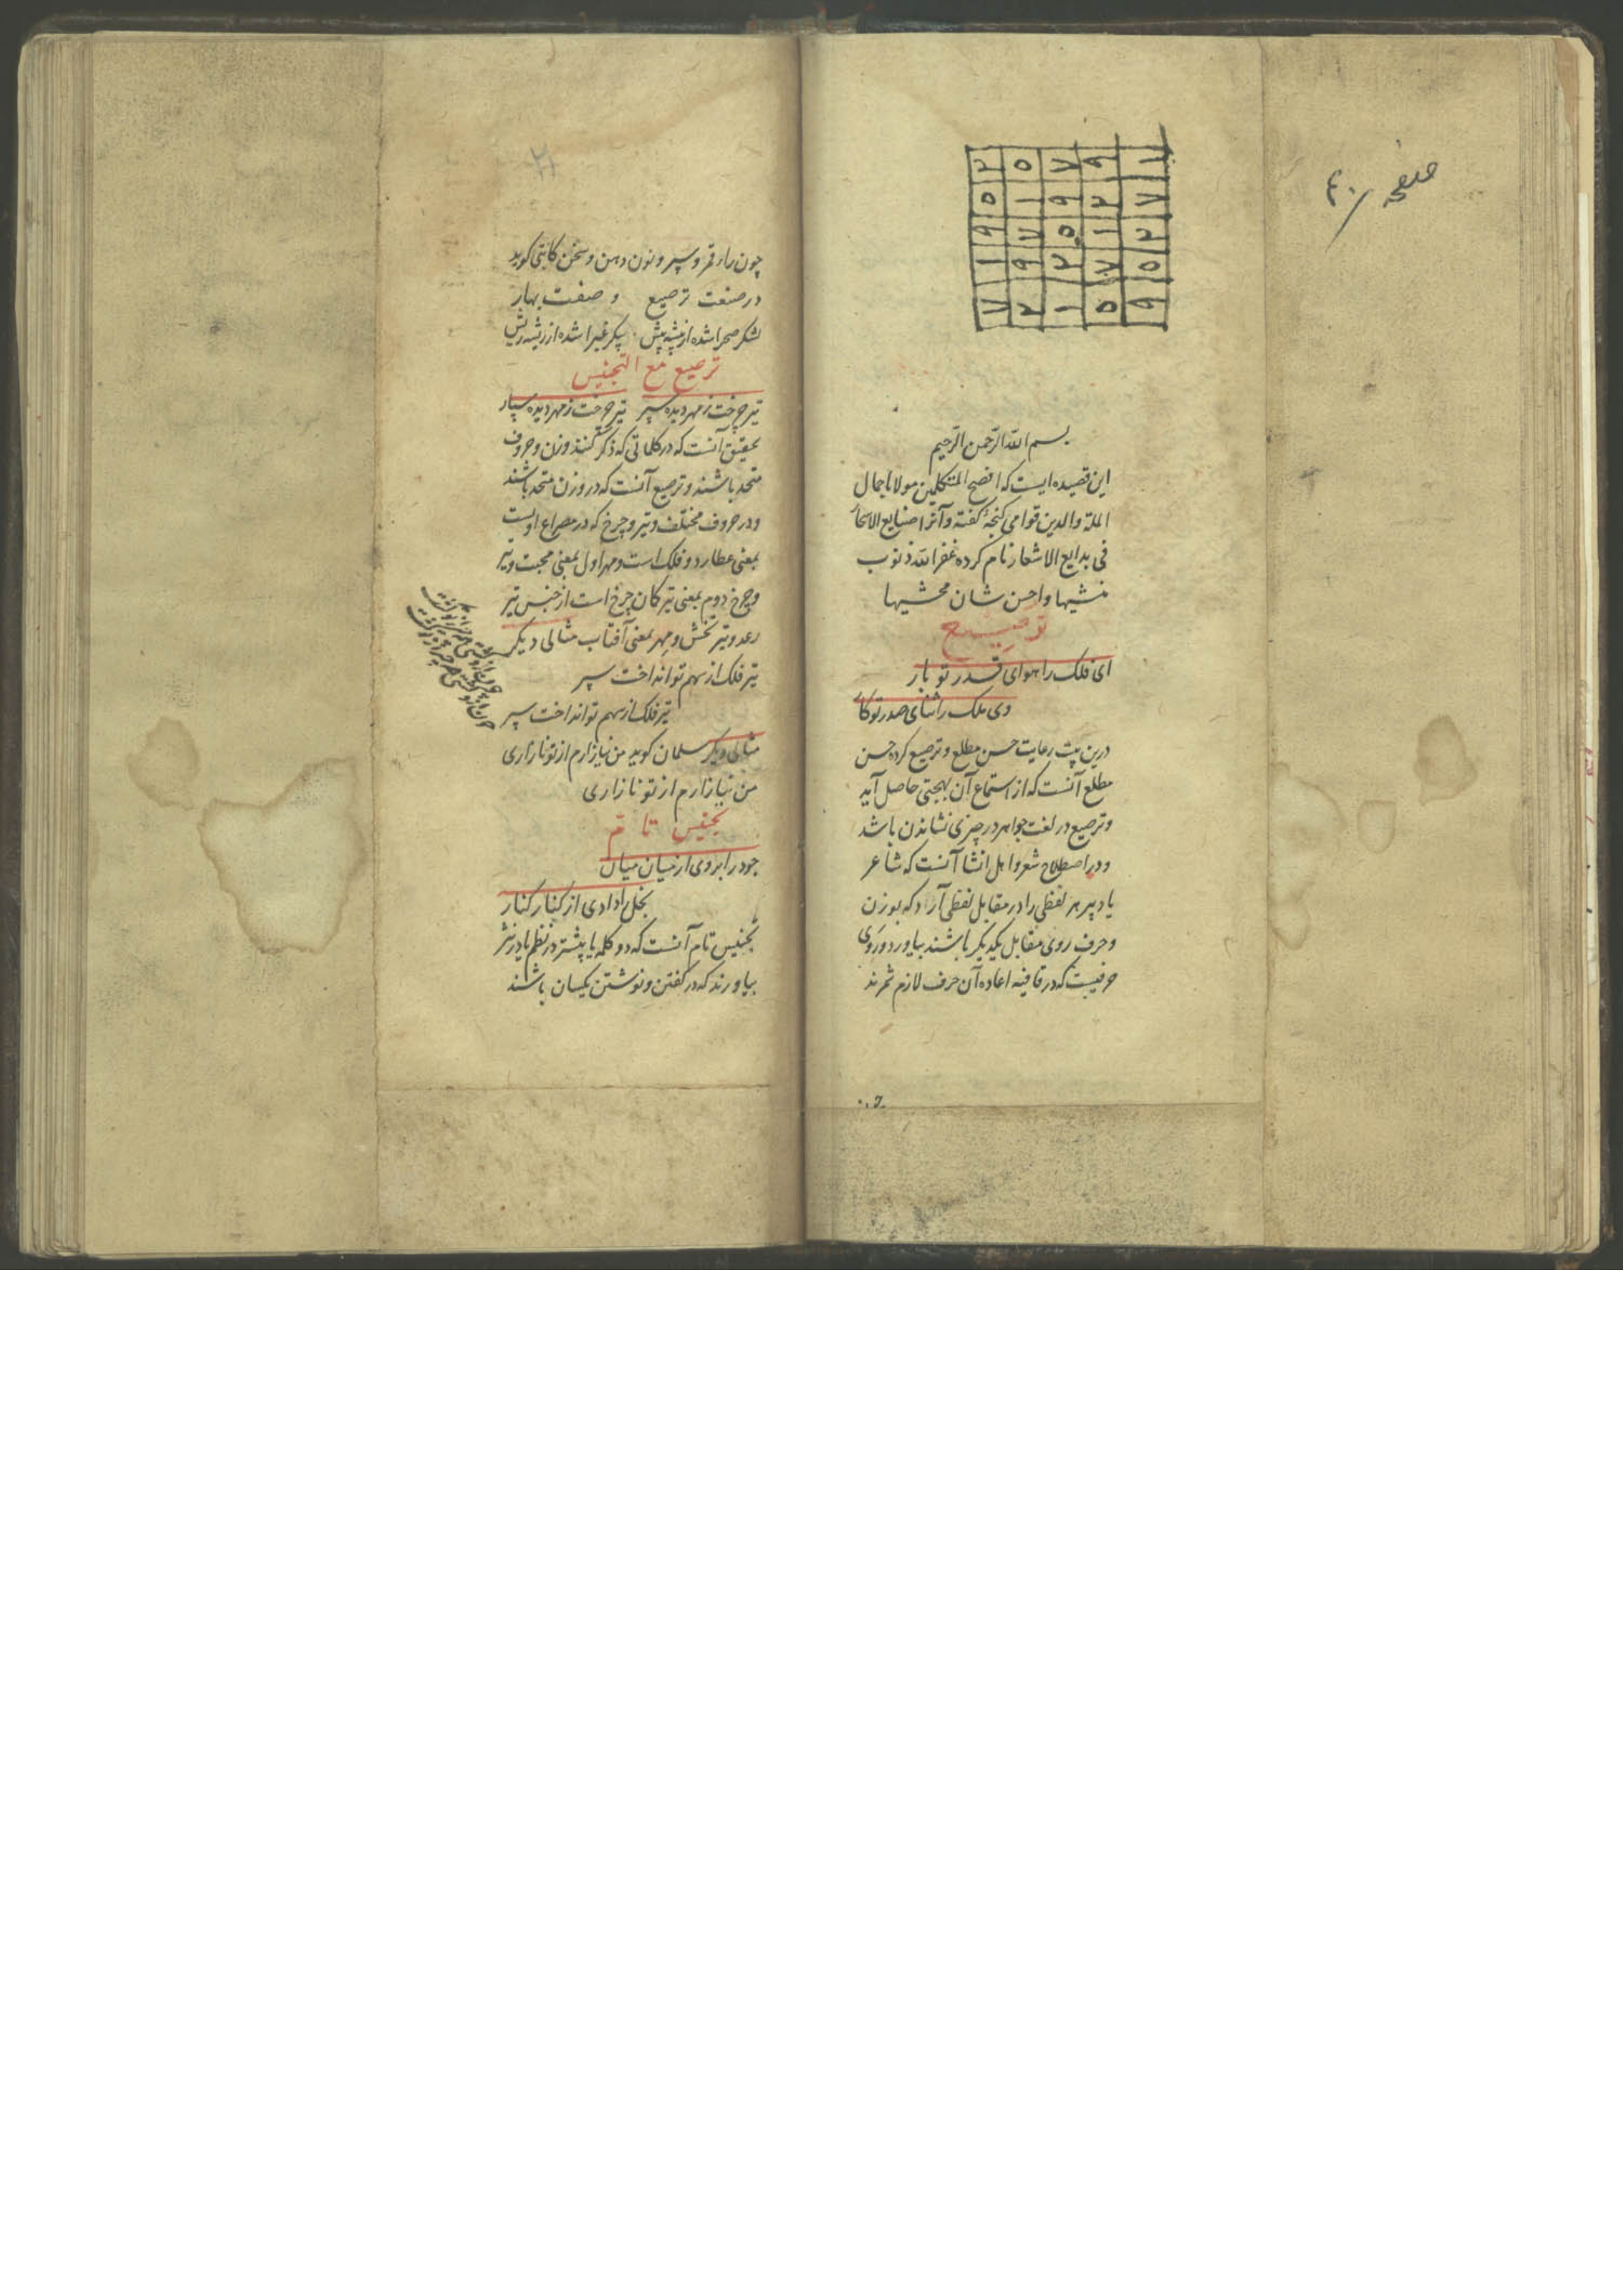 صفحه ۴۰
۲ ۵ ۷ ۹ ۱
۵ ۱ ۹ ۲ ۷
۹ ۷ ۵ ۱ ۲
۱ ۹ ۲ ۷ ۵
۷ ۲ ۱ ۵ ۹
بسم الله الرحمن الرحیم
این قصیده ایست که افصح المتکلمین مولانا جمال
الملة والدین قوامی کنجهٔ کفته و آنرا صنایع الاسحار
فی بدایع الاشعار نام کرده غفر الله ذنوب
منشیها واحسن شان محشیها
ترصیع
ای فلک را هوای قدر تو بار
وی ملک را ثنای صدر تو کار
درین بیت رعایت حسن مطلع و ترصیع کرده حسن
مطلع آنست که از استماع آن بهجتی حاصل آید
و ترصیع در لغت جواهر در چیزی نشاندن باشد
و در اصطلاح شعر و اهل انشا آنست که شاعر
یا دبیر هر لفظی را در مقابل لفظی آرد که بوزن
و حرف روی مقابل یکدیکر باشند بیاورد و روی
حرفیست که در قافیه اعاده آن حرف لازم شمرند
چون
چون را در قمر و سپر و نون دهن و سخن کاتبی کوید
در صنعت ترصیع و صفت بهار
لشکر صحرا شده از بیشه بیش پیکر غبرا شده از ریشه ریش
ترصیع مع التجنیس
تیر چرخت ز مهر دیده سپر تیر چرخت ز مهر دیده سپار
تحقیق آنست که در کلماتی که ذکر کنند وزن و حروف
متحد باشند و ترصیع آنست که در وزن متحد باشند
و در حروف مختلف و تیر و چرخ که در مصراع اولست
بمعنی عطارد و فلک است و مهر اول بمعنی محبت و تیر
و چرخ دوم بمعنی تیر کان چرخ است از جنس تیر
رعد و تیر تخش و مهر بمعنی آفتاب مثالی دیکر
تیر فلک از سهم تو انداخت سپر
تیر فلک از سهم تو انداخت سپر
مثالی دیکر سلمان کوید من نیازارم از تو نازاری
من نیازارم از تو نازاری
تجنیس تام
جود را بردی از میان میان
بخل را دادی از کنار کنار
تجنیس تام آنست که دو کلمه یا بیشتر در نظم یا در نثر
بیاورند که در کفتن و نوشتن یکسان باشند